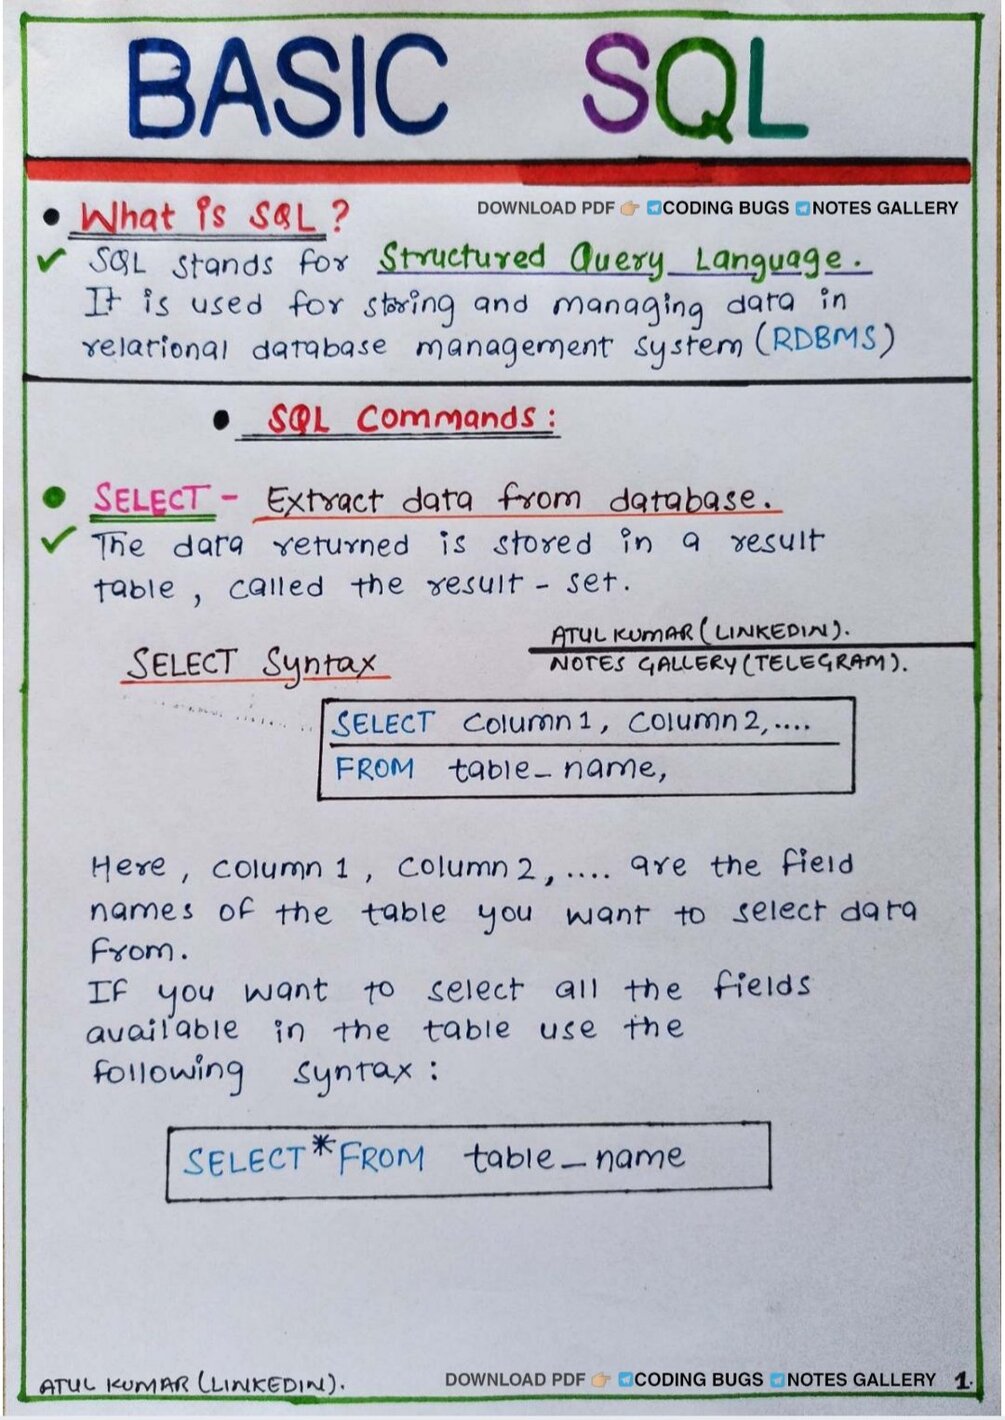 BASIC SQL
• What is SQL?
DOWNLOAD PDF 👉🏼 CODING BUGS NOTES GALLERY
✓ SQL stands for Structured Query Language.
It is used for storing and managing data in
relational database management system (RDBMS)
• SQL Commands:
• SELECT - Extract data from database.
✓ The data returned is stored in a result
table, called the result-set.
ATUL KUMAR (LINKEDIN).
NOTES GALLERY (TELEGRAM).
SELECT Syntax
SELECT Column1, Column2,....
FROM table_name,
Here, column1, column2,.... are the field
names of the table you want to select data
from.
If you want to select all the fields
available in the table use the
following syntax:
SELECT*FROM table_name
ATUL KUMAR (LINKEDIN).
DOWNLOAD PDF 👉🏼 CODING BUGS NOTES GALLERY 1.